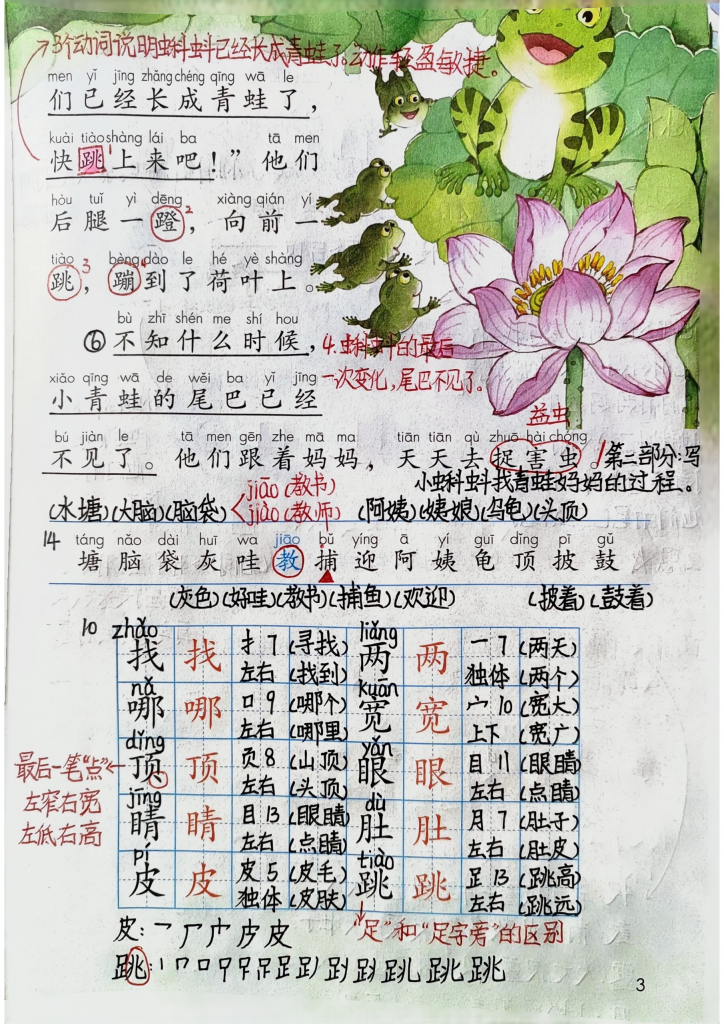 3个动词说明蝌蚪已经长成青蛙了。动作轻盈敏捷。
men yǐ jīng zhǎng chéng qīng wā le
们已经长成青蛙了，
kuài tiào shàng lái ba tā men
快跳1上来吧！”他们
hòu tuǐ yì dēng xiàng qián yí
后腿一蹬2，向前一
tiào bèng dào le hé yè shàng
跳3，蹦4到了荷叶上。
bù zhī shén me shí hou
⑥不知什么时候，
4.蝌蚪的最后
一次变化，尾巴不见了。
xiǎo qīng wā de wěi ba yǐ jīng
小青蛙的尾巴已经
益虫
bú jiàn le tā men gēn zhe mā ma tiān tiān qù zhuō hài chóng
不见了。他们跟着妈妈，天天去捉害虫。
第二部分:写
小蝌蚪找青蛙妈妈的过程。
jiāo(教书)
(水塘)(大脑)(脑袋) (阿姨)(姨娘)(乌龟)(头顶)
jiào(教师)
14 táng nǎo dài huī wa jiāo bǔ yíng ā yí guī dǐng pī gǔ
塘脑袋灰哇教捕迎阿姨龟顶披鼓
(灰色)(好哇)(教书)(捕鱼)(欢迎) (披着)(鼓着)
10
zhǎo liǎng
找 找 扌7 (寻找) 两 两 一7 (两天)
左右 (找到) 独体 (两个)
nǎ kuān
哪 哪 口9 (哪个) 宽 宽 宀10 (宽大)
左右 (哪里) 上下 (宽广)
dǐng yǎn
顶 顶 页8 (山顶) 眼 眼 目11 (眼睛)
左右 (头顶) 左右 (点睛)
最后一笔“点”
左窄右宽
左低右高
jīng dù
睛 睛 目13 (眼睛) 肚 肚 月7 (肚子)
左右 (点睛) 左右 (肚皮)
pí tiào
皮 皮 皮5 (皮毛) 跳 跳 足13 (跳高)
独体 (皮肤) 左右 (跳远)
皮:
“足”和“足字旁”的区别
跳:
3